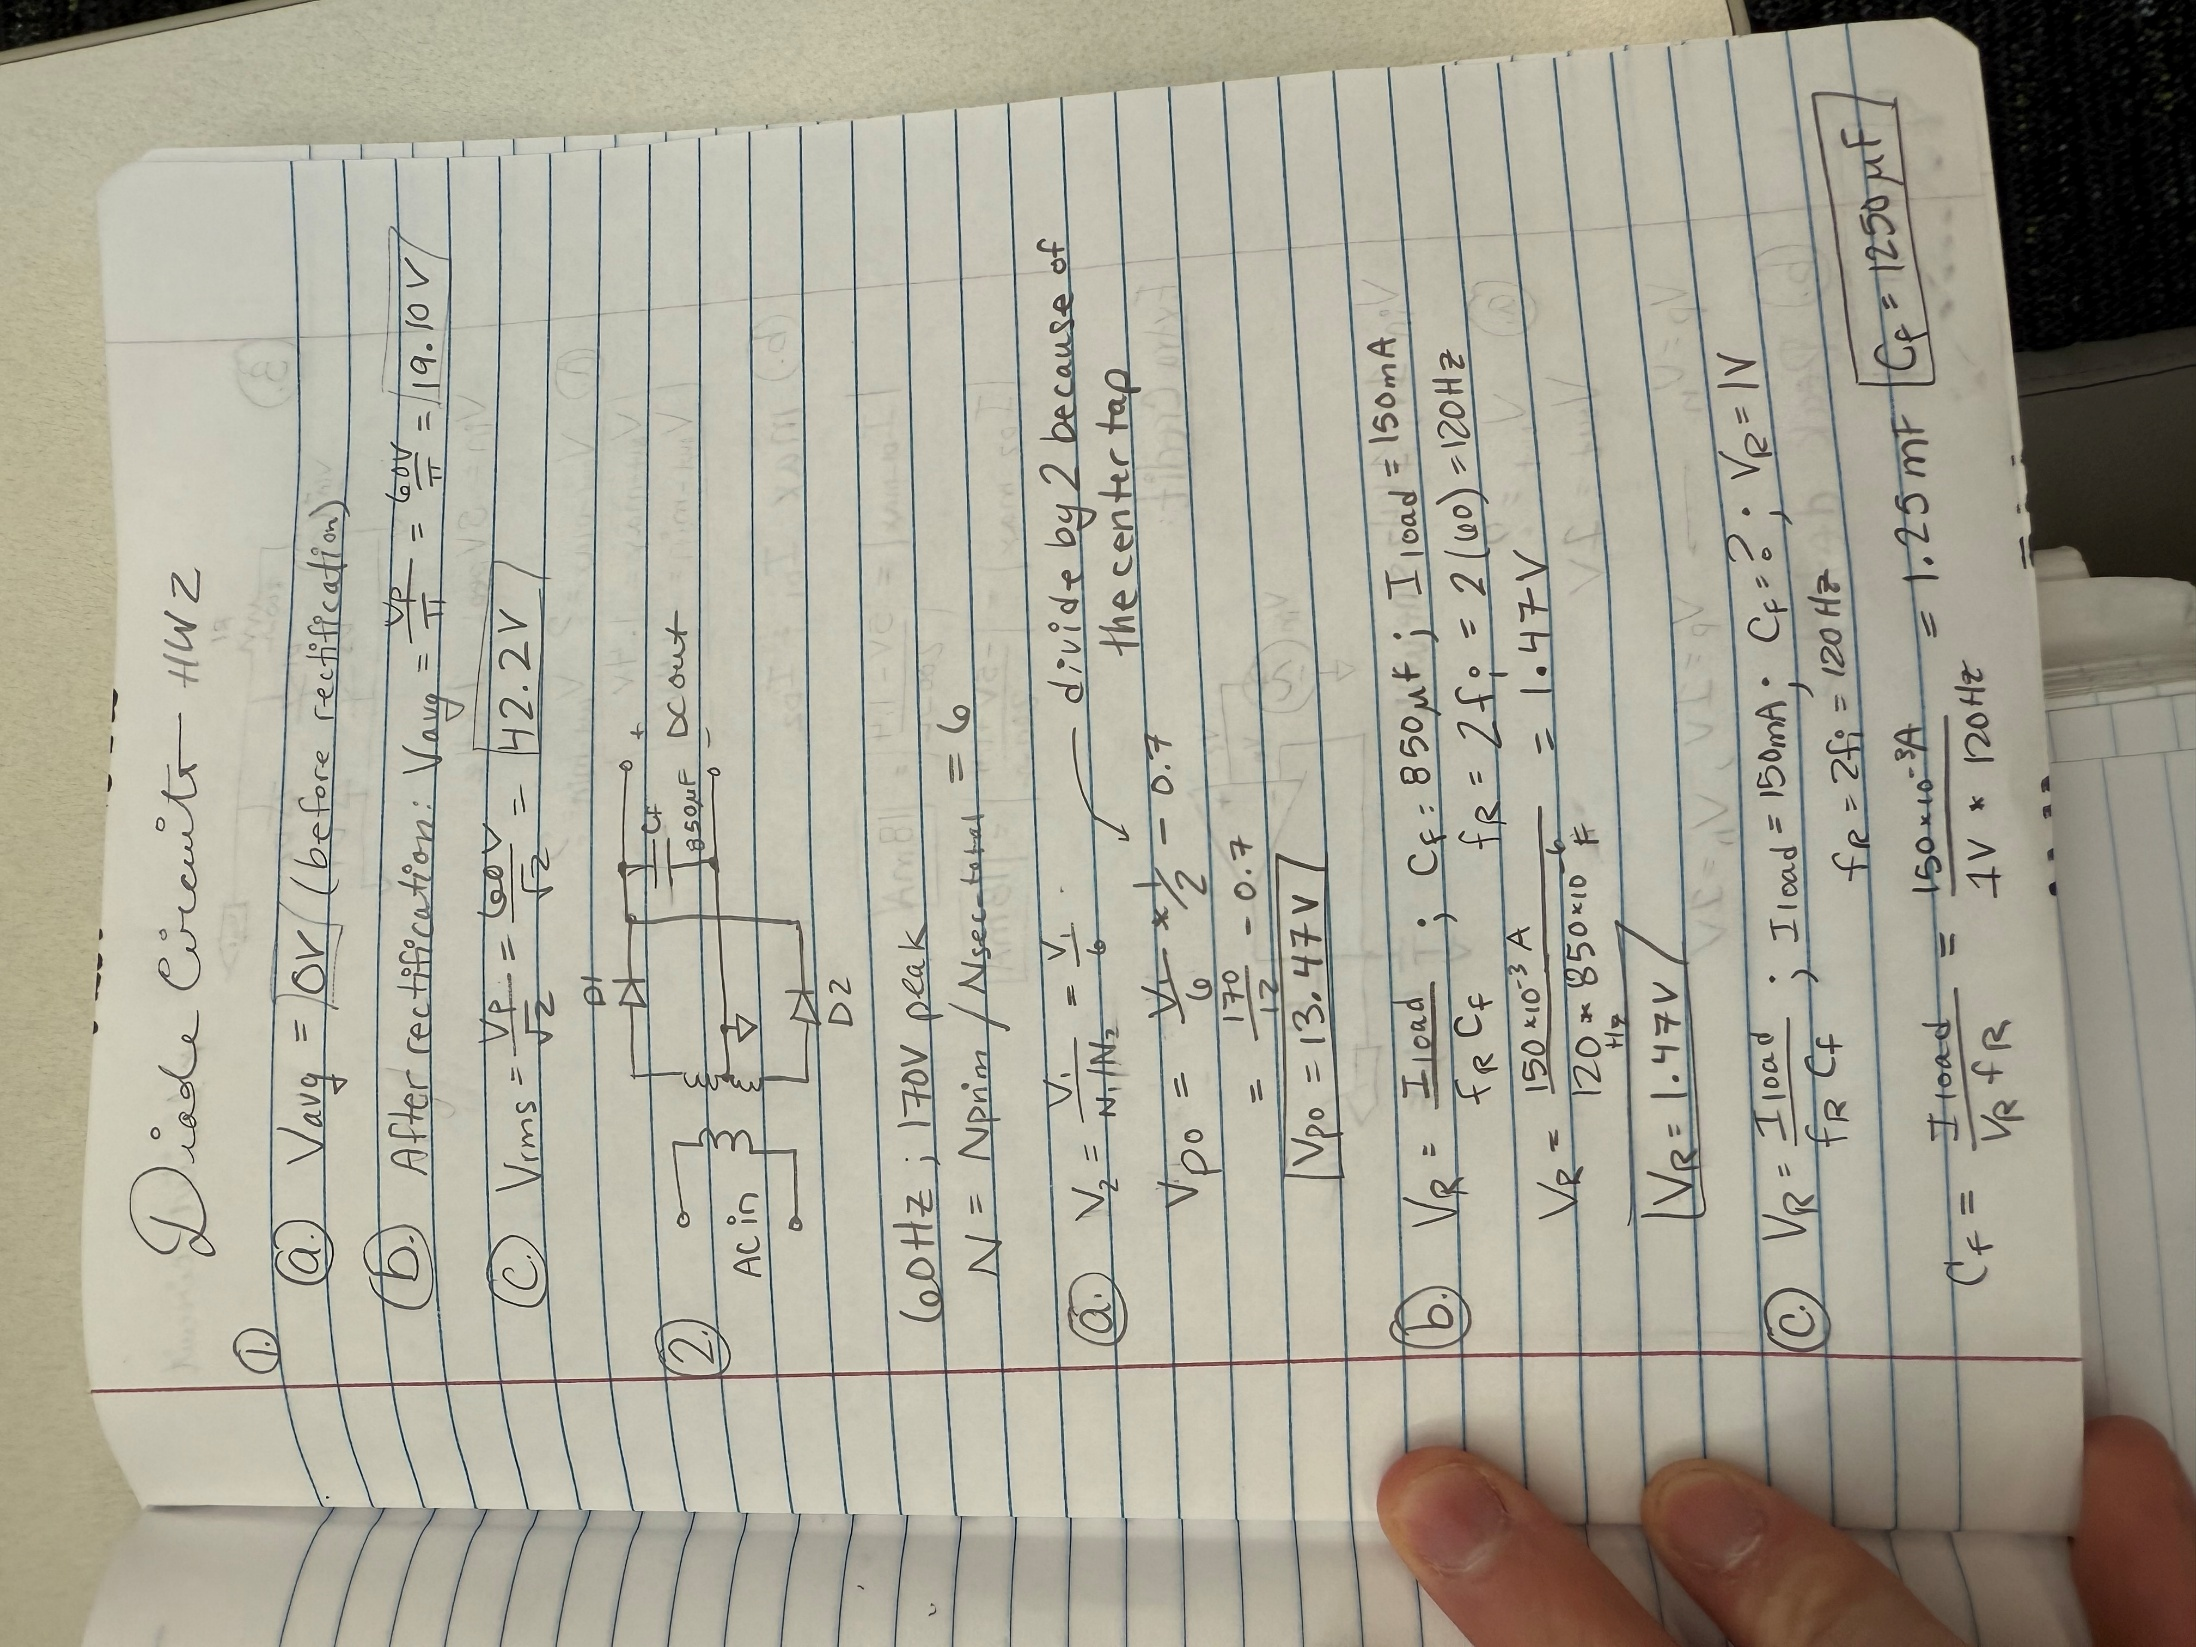 Diode Circuits HW2
1.
a. Vavg = 0V (before rectification)
b. After rectification: Vavg = Vp/π = 60V/π = 19.10V
c. Vrms = Vp/√2 = 60V/√2 = 42.2V
2.
D1
+
CF
850μF
DC out
-
AC in
D2
60Hz ; 170V peak
N = Nprim / Nsec-total = 6
a. V2 = V1/N1/N2 = V1/6
divide by 2 because of
the center tap
VPO = V1/6 * 1/2 - 0.7
= 170/12 - 0.7
VPO = 13.47V
b. VR = Iload/fR CF ; CF = 850μF ; Iload = 150mA
fR = 2fi = 2(60) = 120Hz
VR = 150×10⁻³ A/120Hz * 850×10⁻⁶ F = 1.47V
VR = 1.47V
c. VR = Iload/fR CF ; Iload = 150mA ; CF = ? ; VR = 1V
fR = 2fi = 120Hz
CF = Iload/VR fR = 150×10⁻³A/1V * 120Hz = 1.25mF
CF = 1250μF